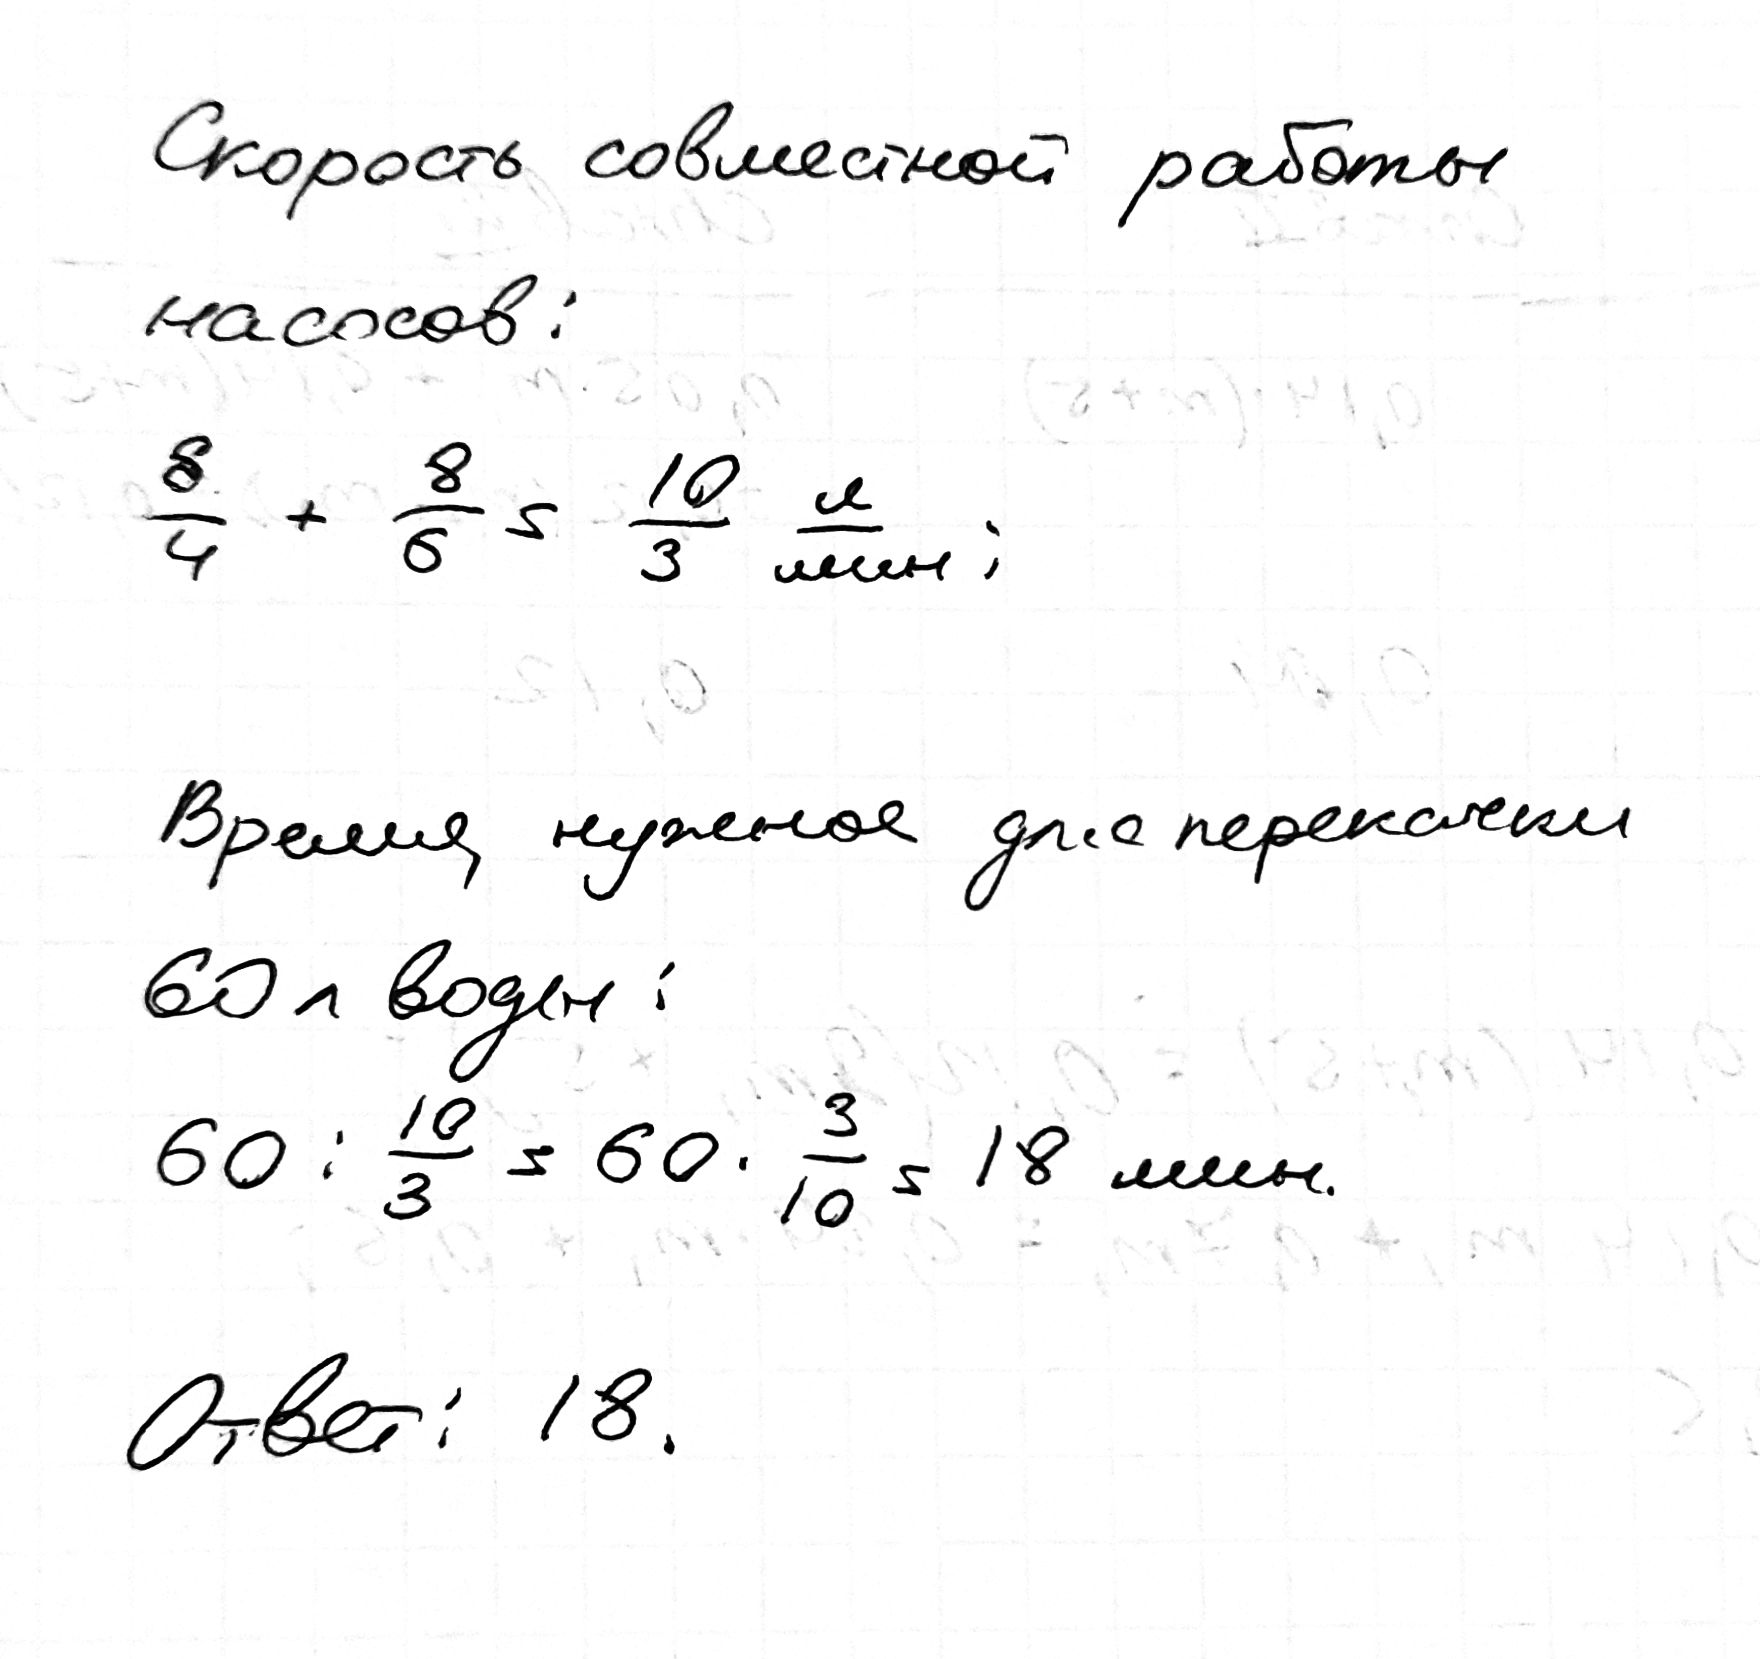 Скорость совместной работы
насосов:
8/4 + 8/6 = 10/3 л/мин;
Время, нужное для перекачки
60 л воды:
60 : 10/3 = 60 · 3/10 = 18 мин.
Ответ: 18.